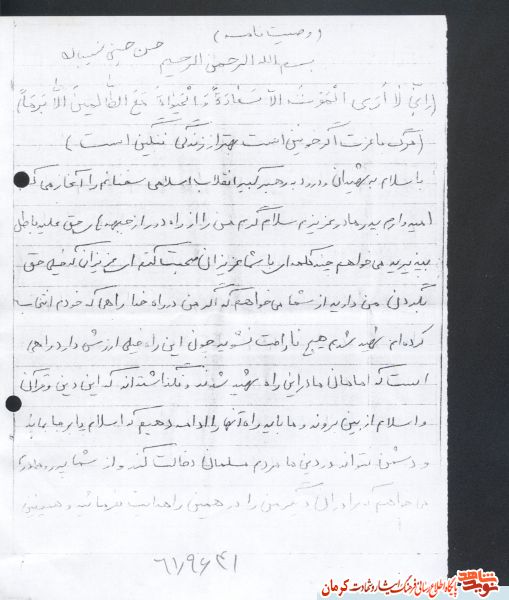 (وصیت نامه)
حسن حسینی نسب
بسم الله الرحمن الرحیم
(اِنّی لا اَرَی الْمَوْتَ اِلاّ سَعادَةً وَ الْحَیاةَ مَعَ الظّالِمینَ اِلاّ بَرَماً)
(مرگ با عزت اگر خونین است بهتر از زندگی ننگین است)
با سلام به شهیدان و درود به رهبر کبیر انقلاب اسلامی سخنانم را آغاز می کنم
امیدوارم پدر و مادر عزیزم سلام گرم من را از راه دور از جبهه های حق علیه باطل
بپذیرید می خواهم چند کلمه ای با شما عزیزانی صحبت کنم ای عزیزان که خیلی حق
بگردنی من دارید از شما می خواهم که اگر من در راه خدا راهی که خودم انتخاب
کرده ام شهید شدم هیچ ناراحت نشوید چون این راه خیلی ارزش دارد راهی
است که امامان ما در این راه شهید شدند و نگذاشتند که این دین و قرآن
و اسلام از بین بروند و ما باید راه آنها را ادامه دهیم که اسلام پا بر جا بماند
و دشمن نتواند در دین ما مردم مسلمان دخالت کند و از شما پدر و مادر
می خواهم که برادران دیگر من را در همین راه هدایت فرمائید و همچنین
پایگاه اطلاع رسانی فرهنگ ایثار و شهادت کرمان
نوید شاهد